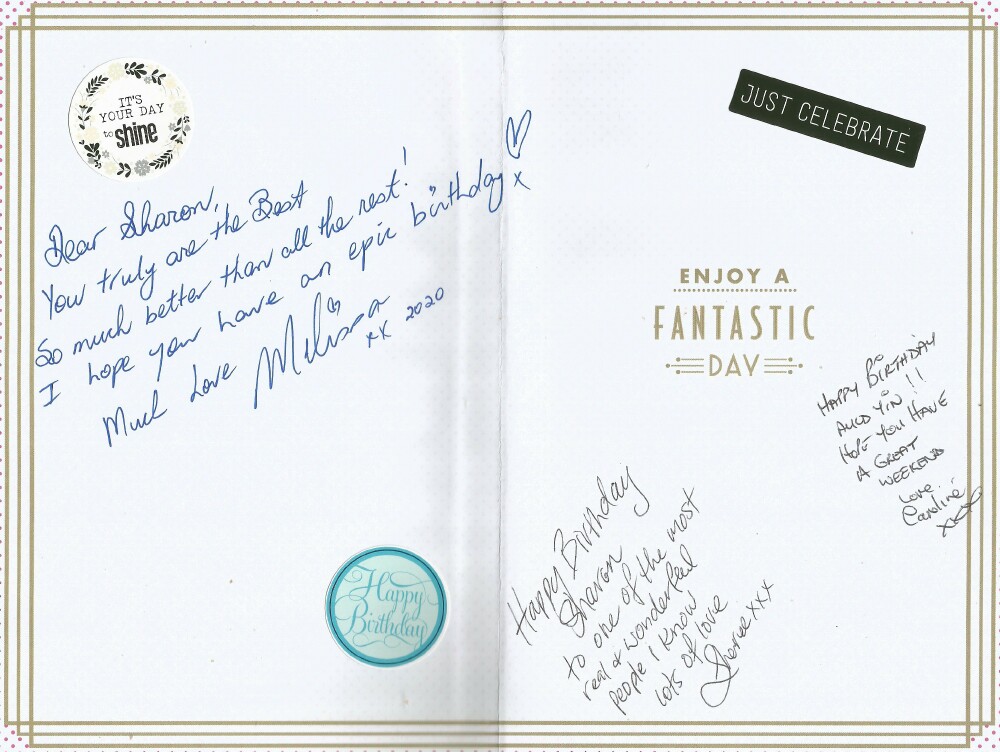 IT'S
YOUR DAY
to shine
Dear Sharon,
You truly are the Best
So much better than all the rest!
I hope you have an epic birthday x
Much Love Melissa
xx 2020
JUST CELEBRATE
ENJOY A
FANTASTIC
DAY
HAPPY BIRTHDAY
AULD YIN!!
HOPE YOU HAVE
A GREAT
WEEKEND
LOVE
Caroline
xxx
Happy Birthday
Sharon
to one of the most
real & wonderful
people I know
lots of love
xxx
Happy
Birthday